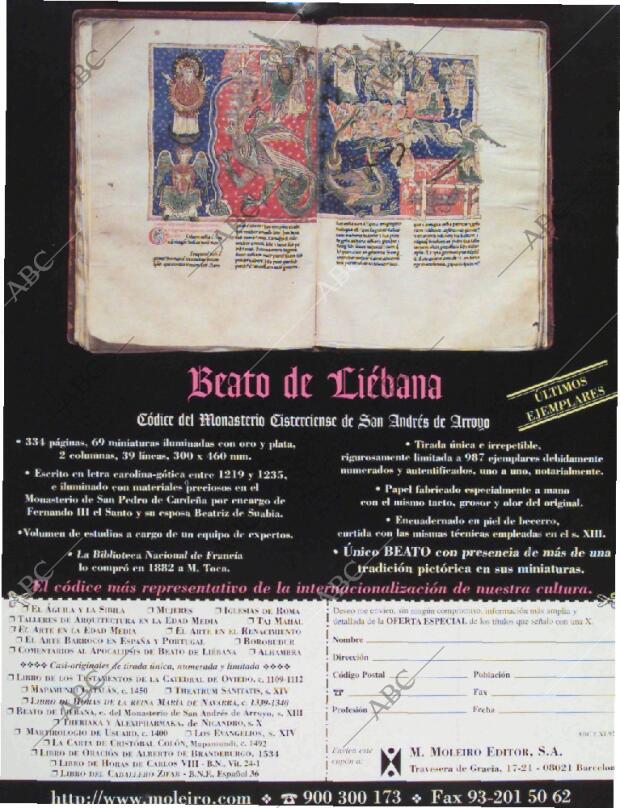 Beato de Liébana
ÚLTIMOS
EJEMPLARES
Códice del Monasterio Cisterciense de San Andrés de Arroyo
• 334 páginas, 69 miniaturas iluminadas con oro y plata,
2 columnas, 39 líneas, 300 x 460 mm.
• Escrito en letra carolina-gótica entre 1219 y 1235,
e iluminado con materiales preciosos en el
Monasterio de San Pedro de Cardeña por encargo de
Fernando III el Santo y su esposa Beatriz de Suabia.
•Volumen de estudios a cargo de un equipo de expertos.
• La Biblioteca Nacional de Francia
lo compró en 1882 a M. Toca.
• Tirada única e irrepetible,
rigurosamente limitada a 987 ejemplares debidamente
numerados y autentificados, uno a uno, notarialmente.
• Papel fabricado especialmente a mano
con el mismo tacto, grosor y olor del original.
• Encuadernado en piel de becerro,
curtida con las mismas técnicas empleadas en el s. XIII.
• Único BEATO con presencia de más de una
tradición pictórica en sus miniaturas.
El códice más representativo de la internacionalización de nuestra cultura.
❒ El Águila y la Sibila ❒ Mujeres ❒ Iglesias de Roma
❒ Talleres de Arquitectura en la Edad Media ❒ Taj Mahal
❒ El Arte en la Edad Media ❒ El Arte en el Renacimiento
❒ El Arte Barroco en España y Portugal ❒ Borobudur
❒ Comentarios al Apocalipsis de Beato de Liébana ❒ Alhambra
❖❖❖❖ Casi-originales de tirada única, numerada y limitada ❖❖❖❖
❒ Libro de los Testamentos de la Catedral de Oviedo, c. 1109-1112
❒ Mapamundi Catalán, c. 1450 ❒ Theatrum Sanitatis, s. XIV
❒ Libro de Horas de la reina María de Navarra, c. 1339-1340
❒ Beato de Liébana, c. del Monasterio de San Andrés de Arroyo, s. XIII
❒ Theriaka y Alexipharmaka, de Nicandro, s. X
❒ Martirologio de Usuard, c. 1400 ❒ Los Evangelios, s. XIV
❒ La Carta de Cristóbal Colón, Mapamundi, c. 1492
❒ Libro de Oración de Alberto de Brandeburgo, 1534
❒ Libro de Horas de Carlos VIII - B.N., Vit. 24-1
❒ Libro del Caballero Zifar - B.N.F., Español 36
Deseo me envíen, sin ningún compromiso, información más amplia y
detallada de la OFERTA ESPECIAL de los títulos que señalo con una X.
Nombre
Dirección
Código Postal Población
☎ Fax
Profesión Fecha
Envíen este
cupón a:
M. Moleiro Editor, S.A.
Travesera de Gracia, 17-21 - 08021 Barcelona
http://www.moleiro.com ❖ ☎ 900 300 173 ❖ Fax 93-201 50 62